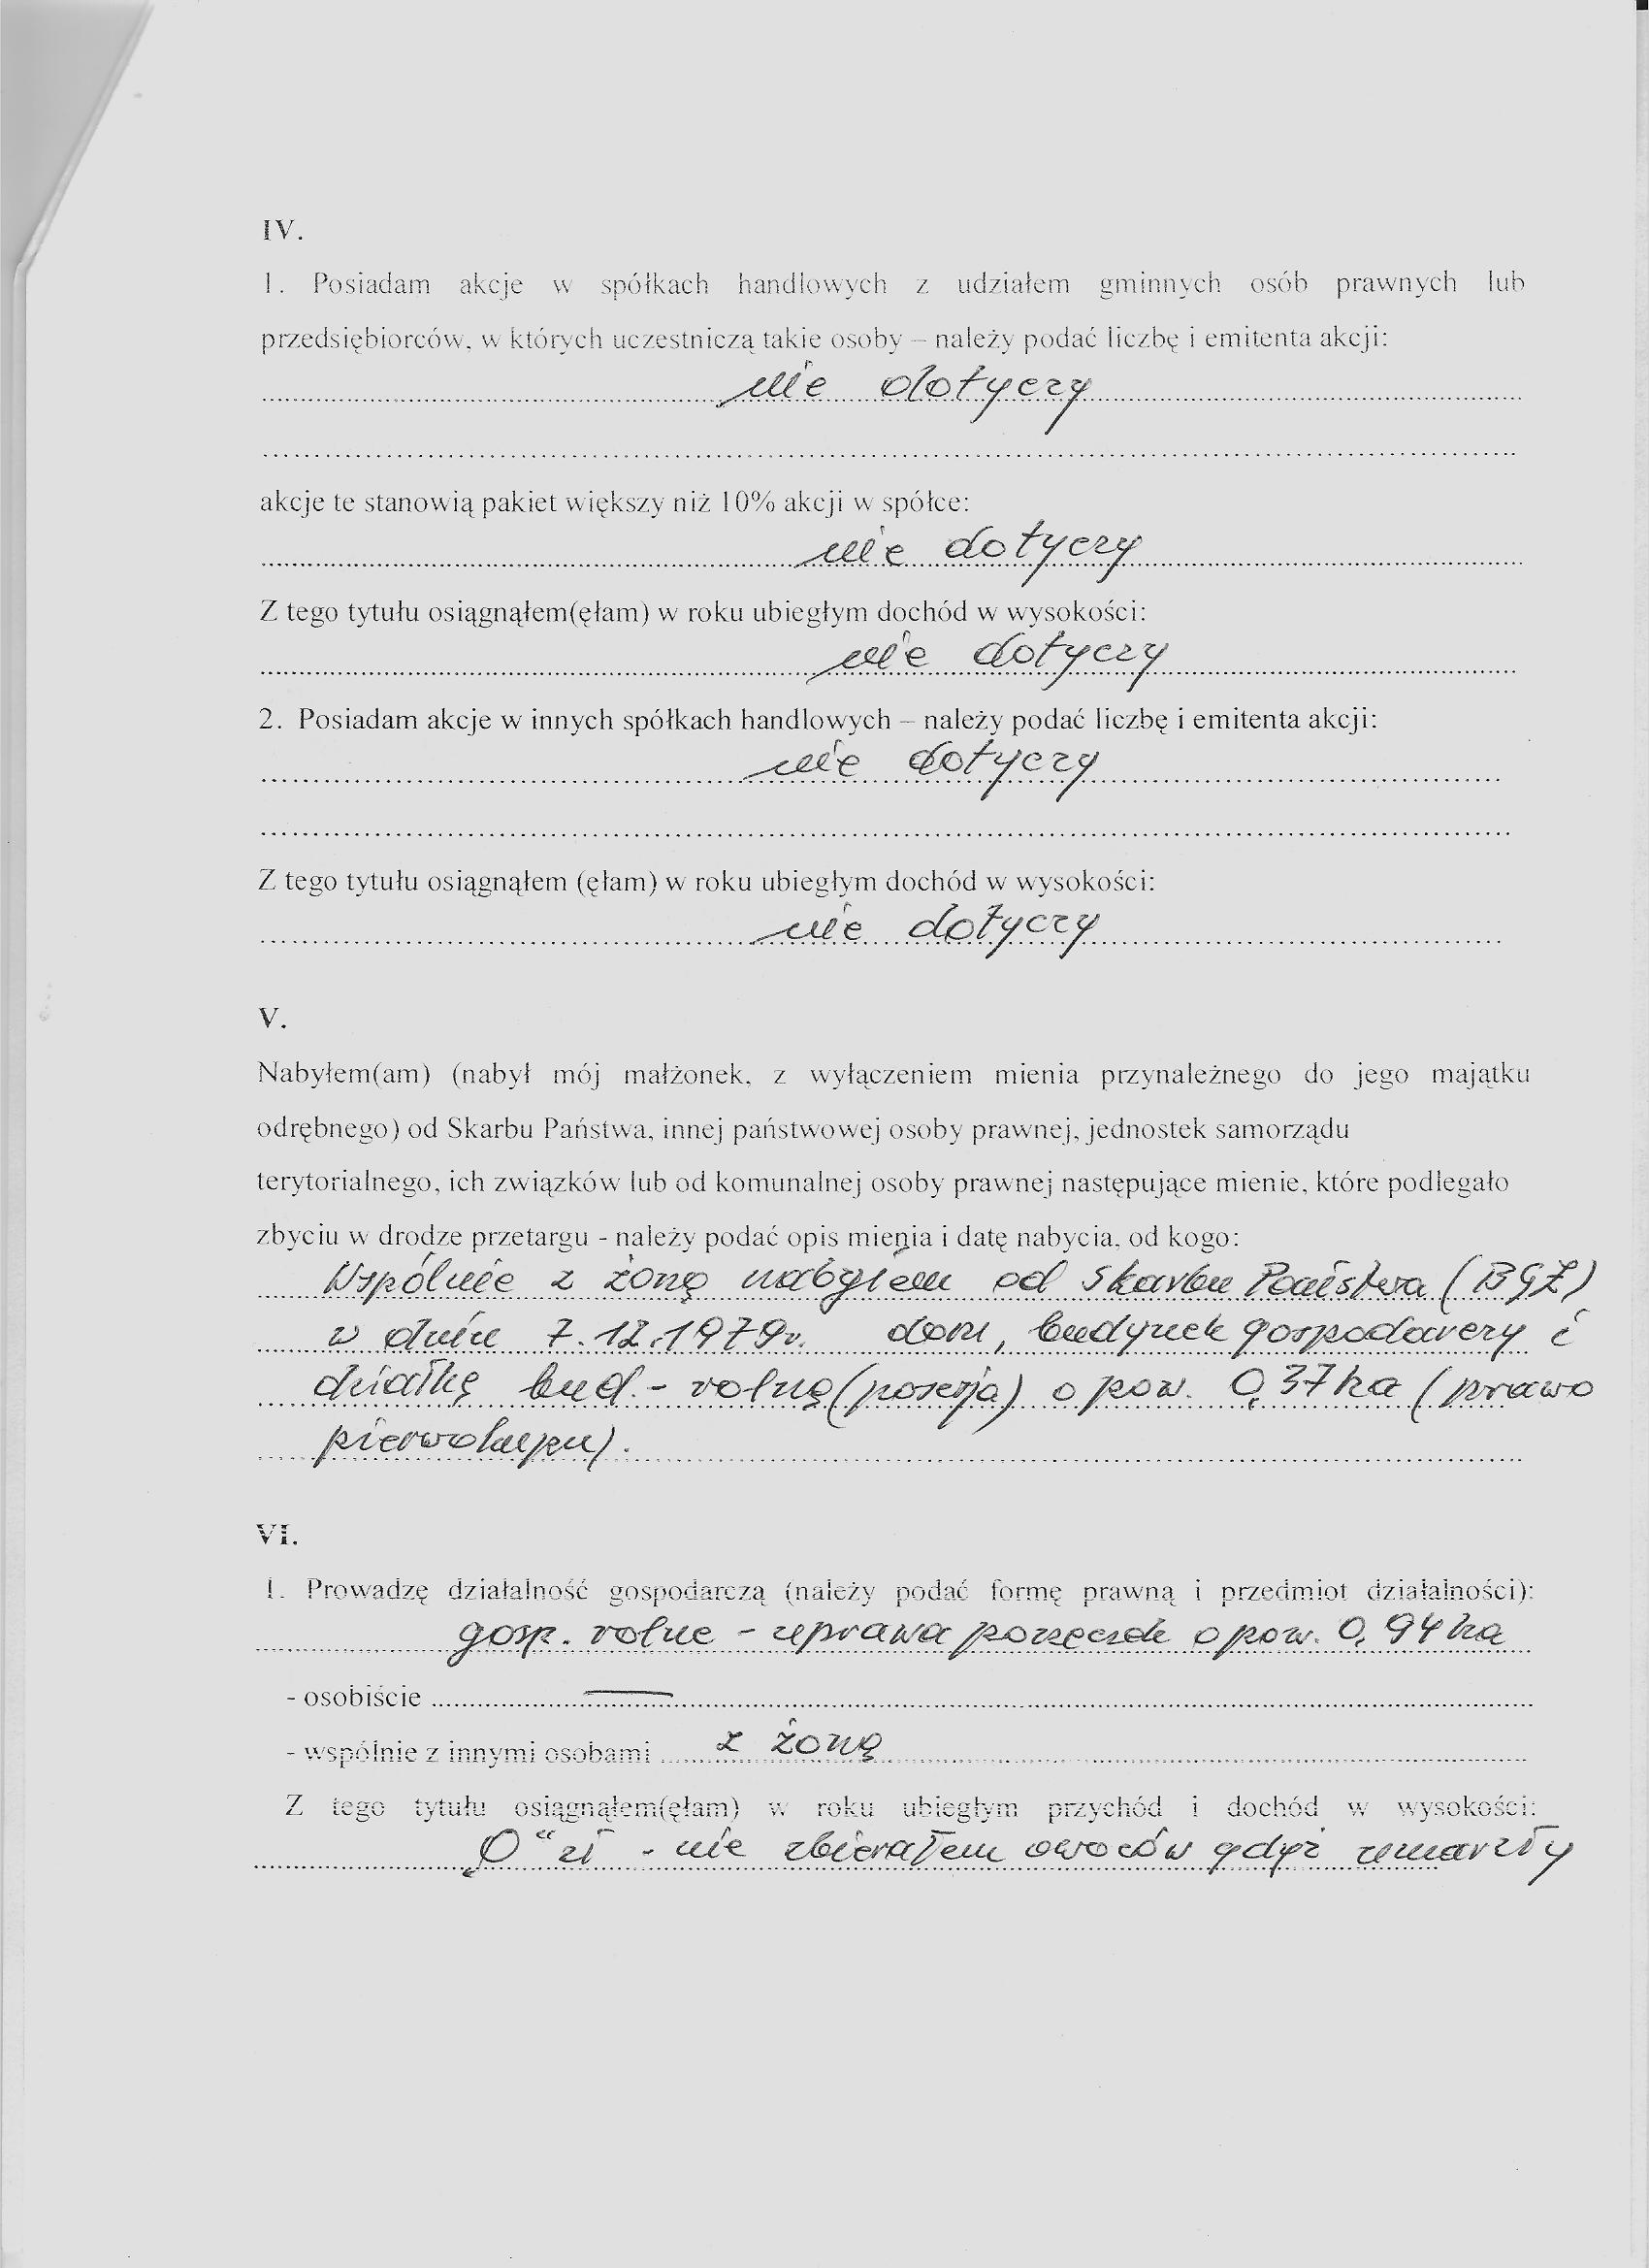 IV.
1. Posiadam akcje w spółkach handlowych z udziałem gminnych osób prawnych lub
przedsiębiorców, w których uczestniczą takie osoby – należy podać liczbę i emitenta akcji:
nie dotyczy
akcje te stanowią pakiet większy niż 10% akcji w spółce:
nie dotyczy
Z tego tytułu osiągnąłem(ęłam) w roku ubiegłym dochód w wysokości:
nie dotyczy
2. Posiadam akcje w innych spółkach handlowych – należy podać liczbę i emitenta akcji:
nie dotyczy
Z tego tytułu osiągnąłem (ęłam) w roku ubiegłym dochód w wysokości:
nie dotyczy
V.
Nabyłem(am) (nabył mój małżonek, z wyłączeniem mienia przynależnego do jego majątku
odrębnego) od Skarbu Państwa, innej państwowej osoby prawnej, jednostek samorządu
terytorialnego, ich związków lub od komunalnej osoby prawnej następujące mienie, które podlegało
zbyciu w drodze przetargu - należy podać opis mienia i datę nabycia, od kogo:
Wspólnie z żoną nabyłem od Skarbu Państwa (BGŻ)
w dniu 7.12.1979r. dom, budynek gospodarczy i
działkę bud.- rolną (posesja) o pow. 0,37 ha (prawo
pierwokupu).
VI.
1. Prowadzę działalność gospodarczą (należy podać formę prawną i przedmiot działalności):
gosp. rolne - uprawa porzeczek o pow. 0,94 ha
- osobiście —
- wspólnie z innymi osobami z żoną
Z tego tytułu osiągnąłem(ęłam) w roku ubiegłym przychód i dochód w wysokości:
„0“ zł - nie zbierałem owoców gdyż zmarzły